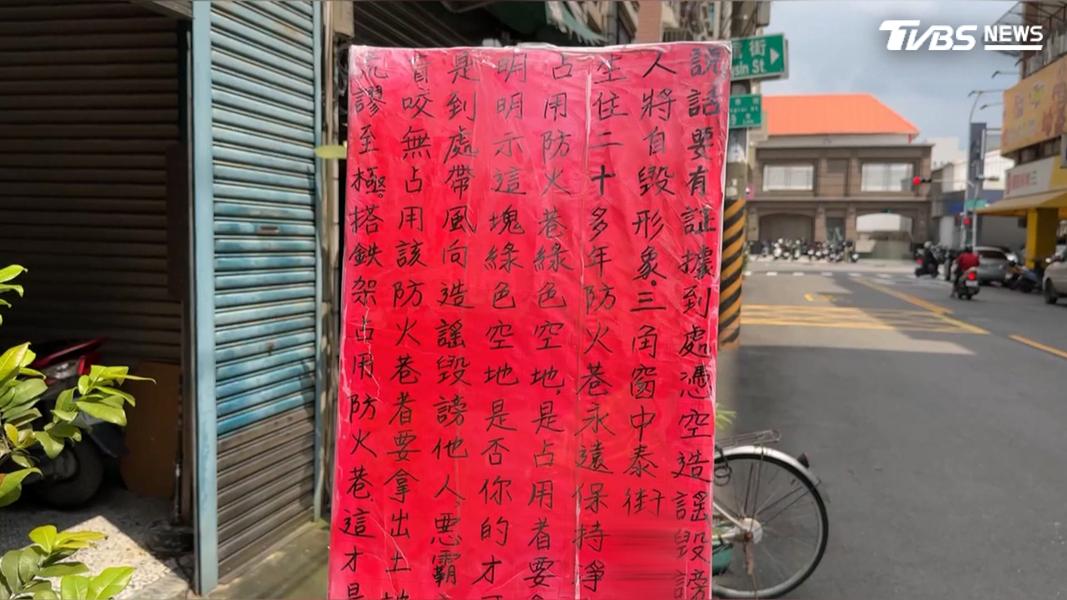 TVBS NEWS
説話要有証據到處憑空造謠毀謗
人將自毀形象.三角窗中泰街
住二十多年防火巷永遠保持
占用防火巷綠色空地,是占用者要
明明示這塊綠色空地是否你的才
是到處帶風向造謠毀謗他人惡霸
咬無占用該防火巷者要拿出土
荒謬至極.搭鉄架占用防火巷.這才是
街
sin St